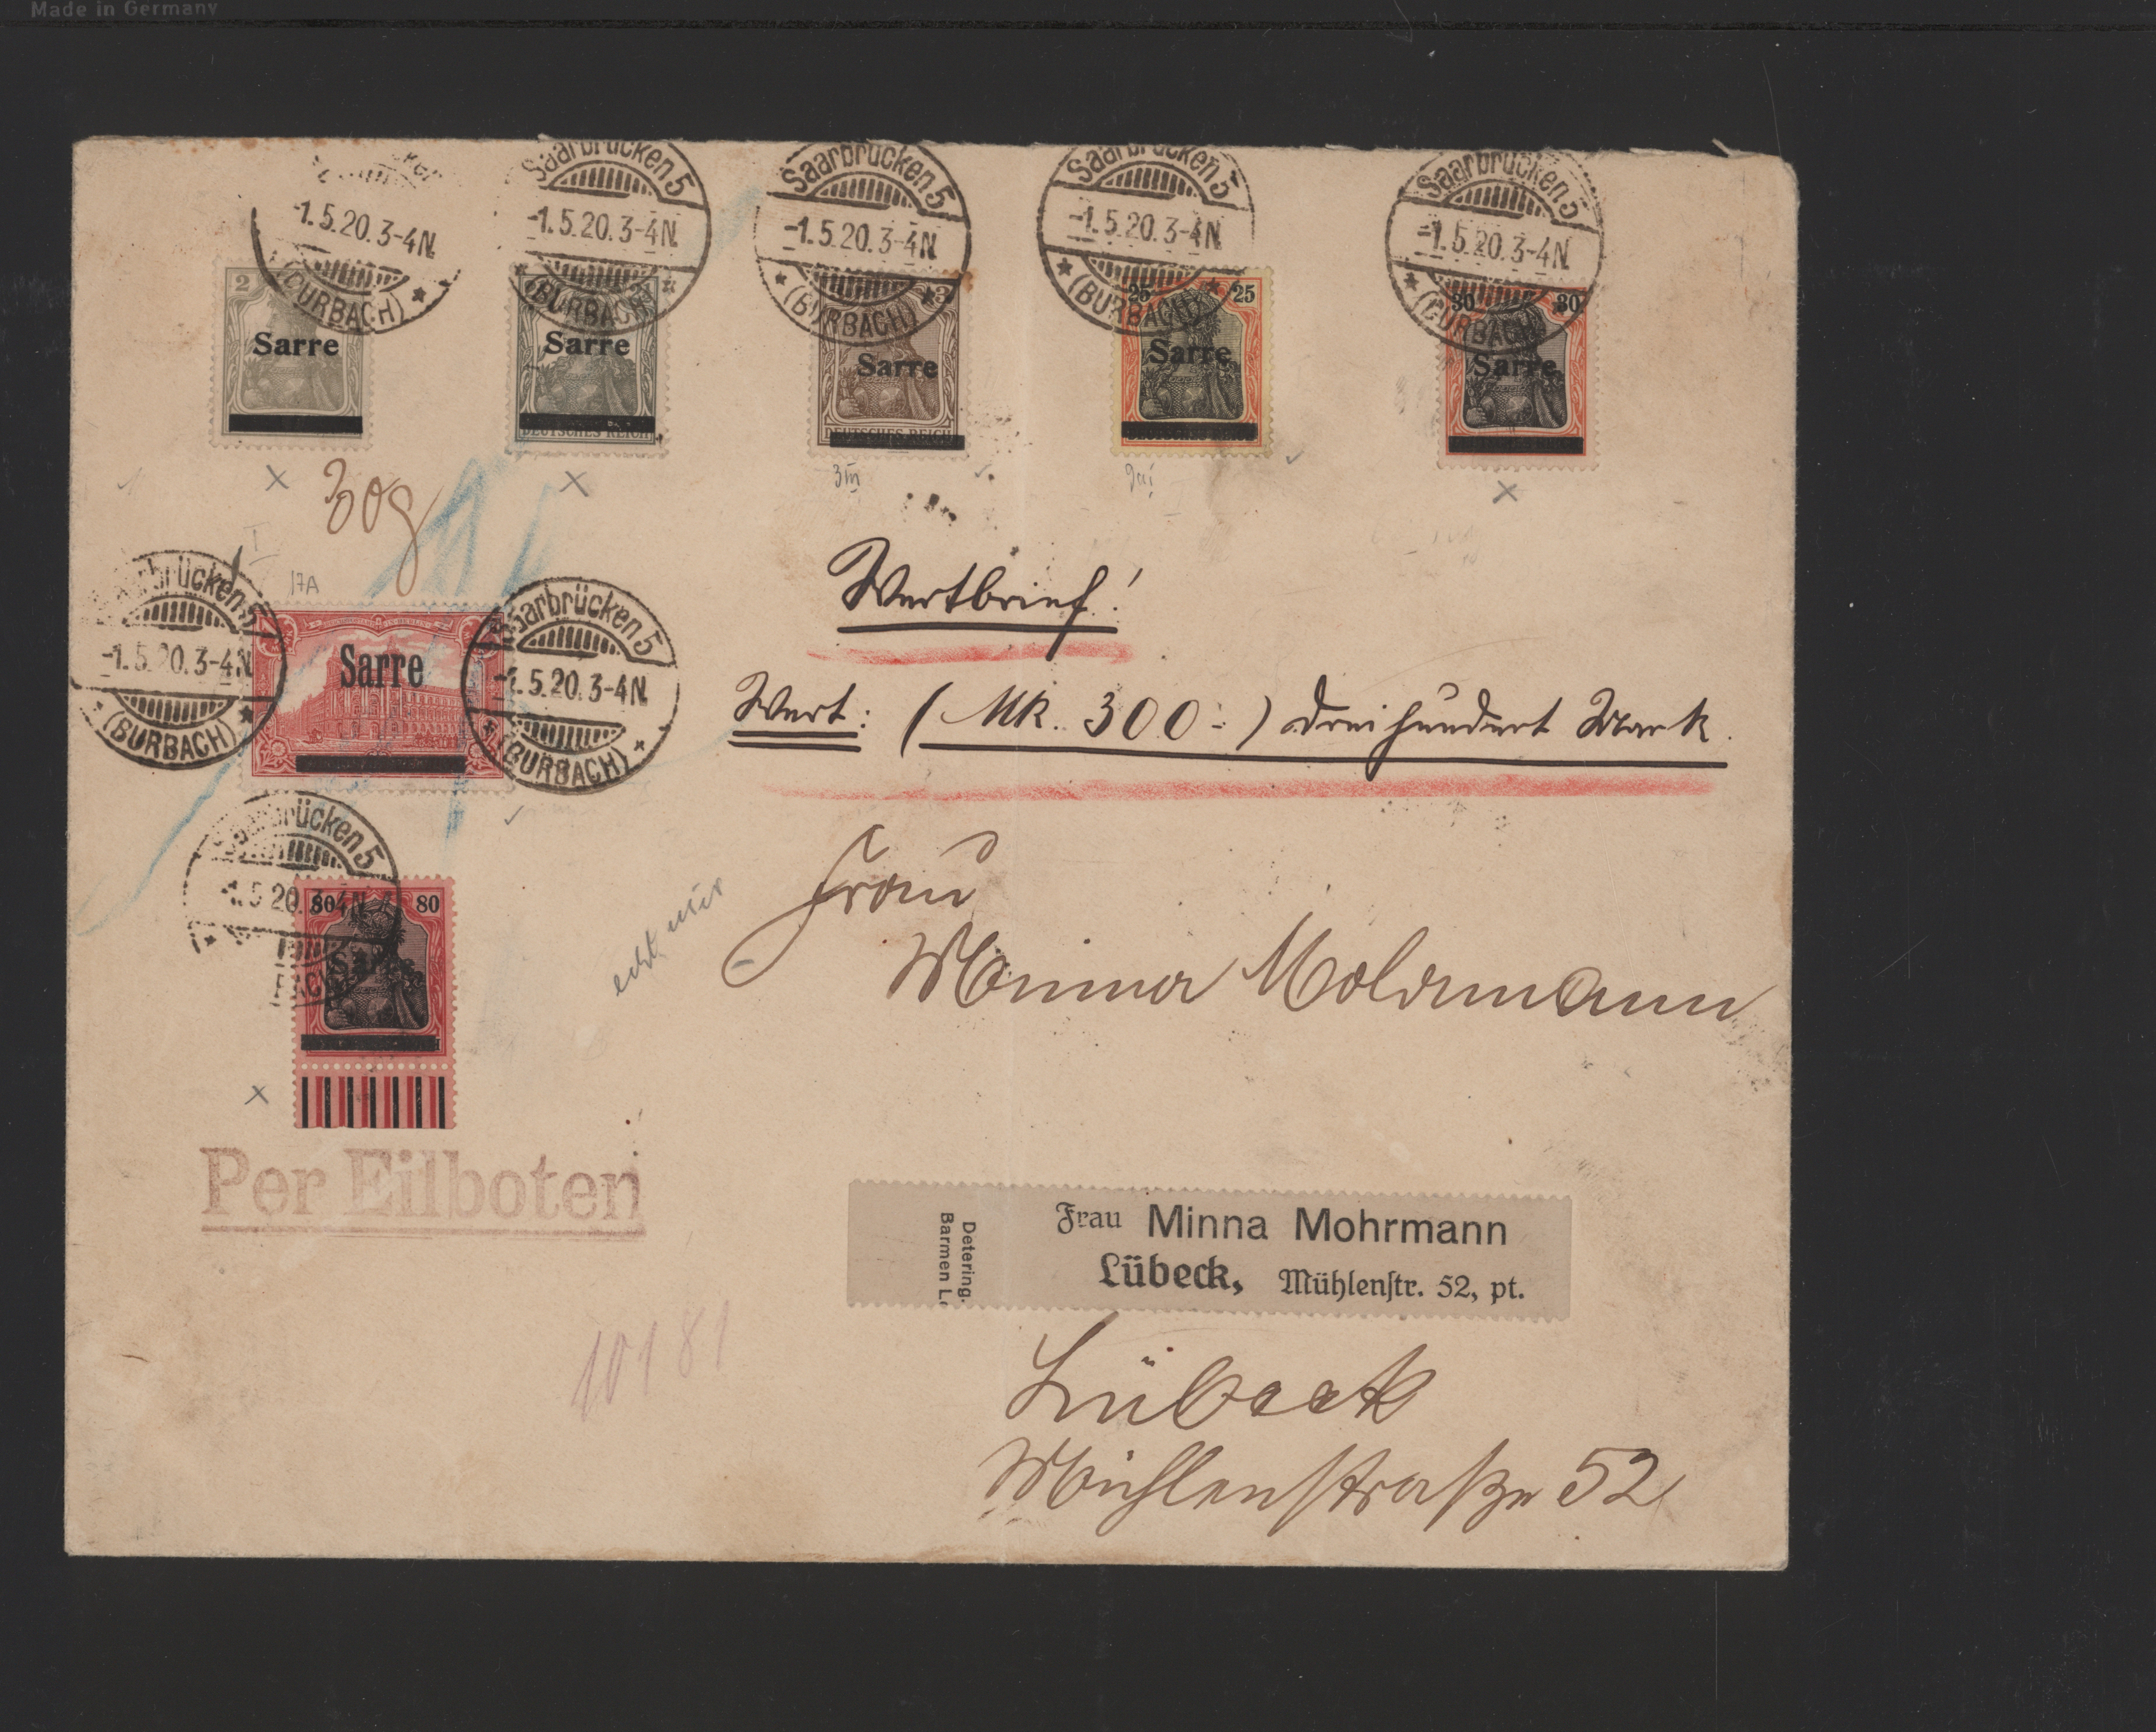 Made in Germany
Saarbrücken 5
-1.5.20.3-4N.
(BURBACH)
Saarbrücken 5
-1.5.20.3-4N.
(BURBACH)
Saarbrücken 5
-1.5.20.3-4N.
(BURBACH)
Saarbrücken 5
-1.5.20.3-4N.
(BURBACH)
2
Sarre
Sarre
DEUTSCHES REICH
3
Sarre
DEUTSCHES REICH
25 25
Sarre
30 30
Sarre
30g
3III
Wertbrief!
17A
Saarbrücken 5
-1.5.20.3-4N.
(BURBACH)
Sarre
Saarbrücken 5
-1.5.20.3-4N.
(BURBACH)
Wert: (Mk. 300.-) dreihundert Mark.
Saarbrücken 5
-1.5.20.3-4N.
80 80
Sarre
Frau
Minna Mohrmann
Per Eilboten
Detering.
Barmen
Frau Minna Mohrmann
Lübeck, Mühlenstr. 52, pt.
10181
Lübeck
Mühlenstraße 52